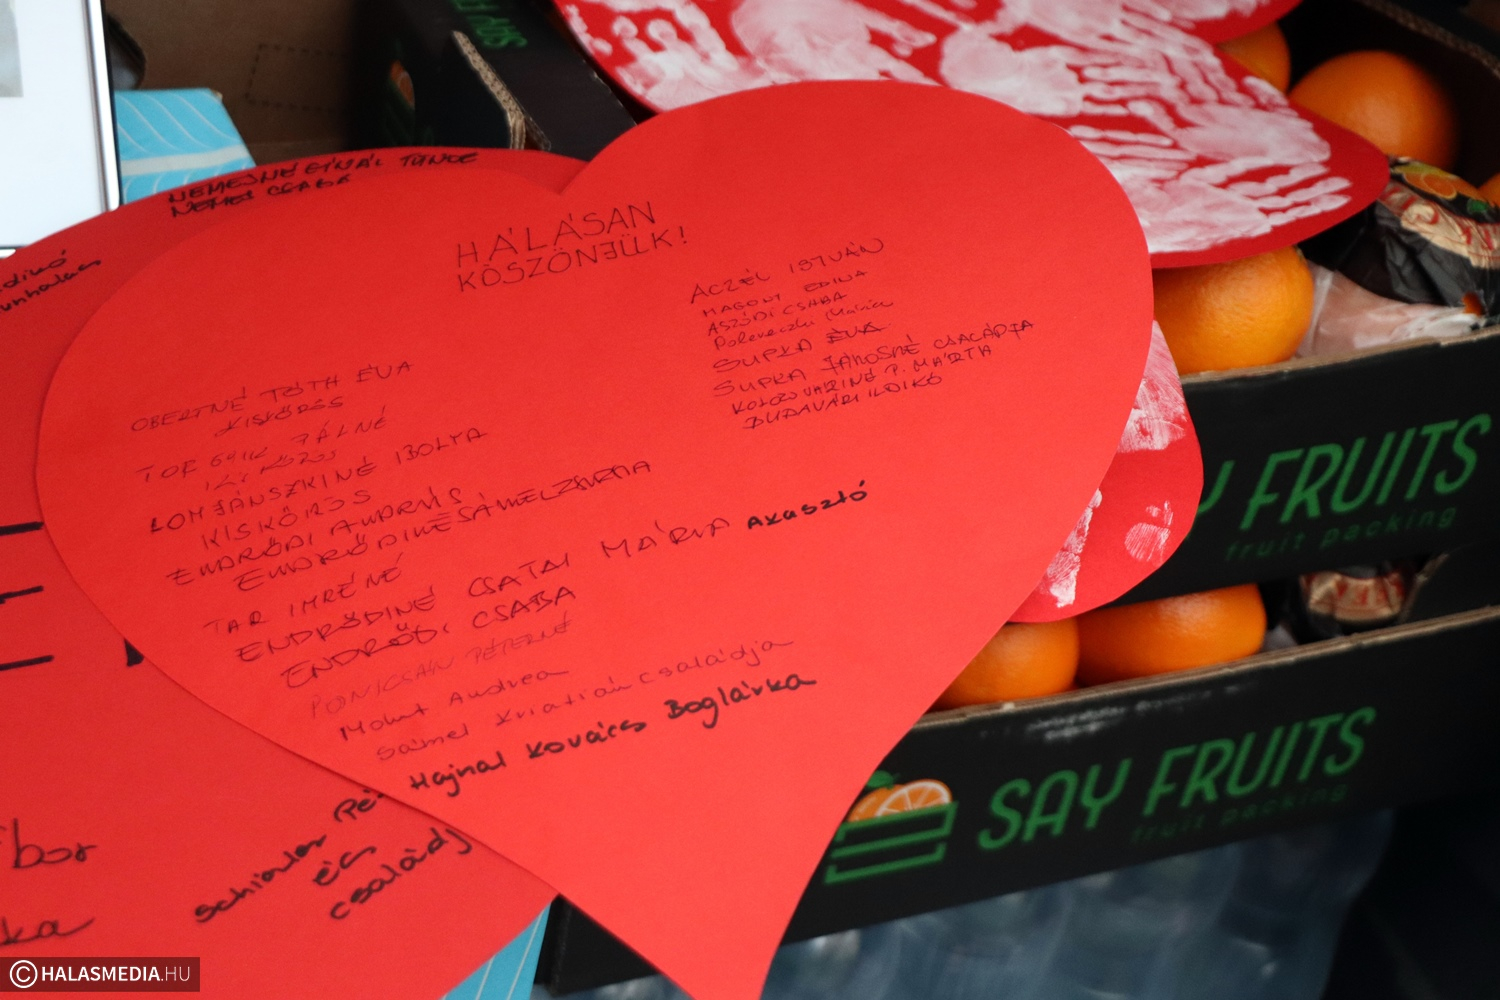 NEMESNÉ GINÁL TÜNDE
NEMES CSABA
HÁLÁSAN
KÖSZÖNJÜK!
ACZÉL ISTVÁN
MAGONY EDINA
ASZÓDI CSABA
Mária
SUPKA ÉVA
SUPKA JÁNOSNÉ CSALÁDJA
KOLOZSVÁRINÉ P. MÁRTA
BUDAVÁRI ILDIKÓ
OBERTNÉ TÓTH ÉVA
KISKŐRÖS
PÁLNÉ
KISKŐRÖS
LOMJÁNSZKINÉ IBOLYA
KISKŐRÖS
ENDRŐDI ANDRÁS
ENDRŐDINÉ SÁMEL ZSUZSANNA
TAR IMRÉNÉ
ENDRŐDINÉ CSATAI MÁRIA AKASZTÓ
ENDRŐDI CSABA
PONICSÁN PÉTERNÉ
Mohut Andrea
Sámel Krisztián családja
Hajnal Kovács Boglárka
Schindler Pé
és
családj
dikó
ibor
ka
SAY FRUITS
Y FRUITS
fruit packing
SAY FRUITS
fruit packing
© HALASMEDIA.HU